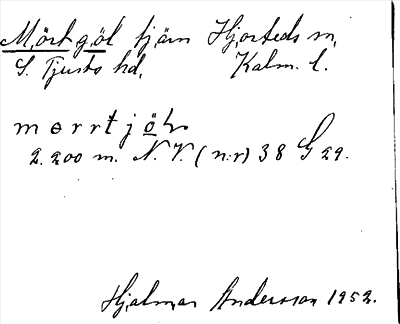 Mörtgöl tjärn Hjorteds sn,
S. Tjusts hd, Kalm. l.
mørrtjöl
2.200 m. N.V. (n:r) 38 G 29.
Hjalmar Andersson 1952.